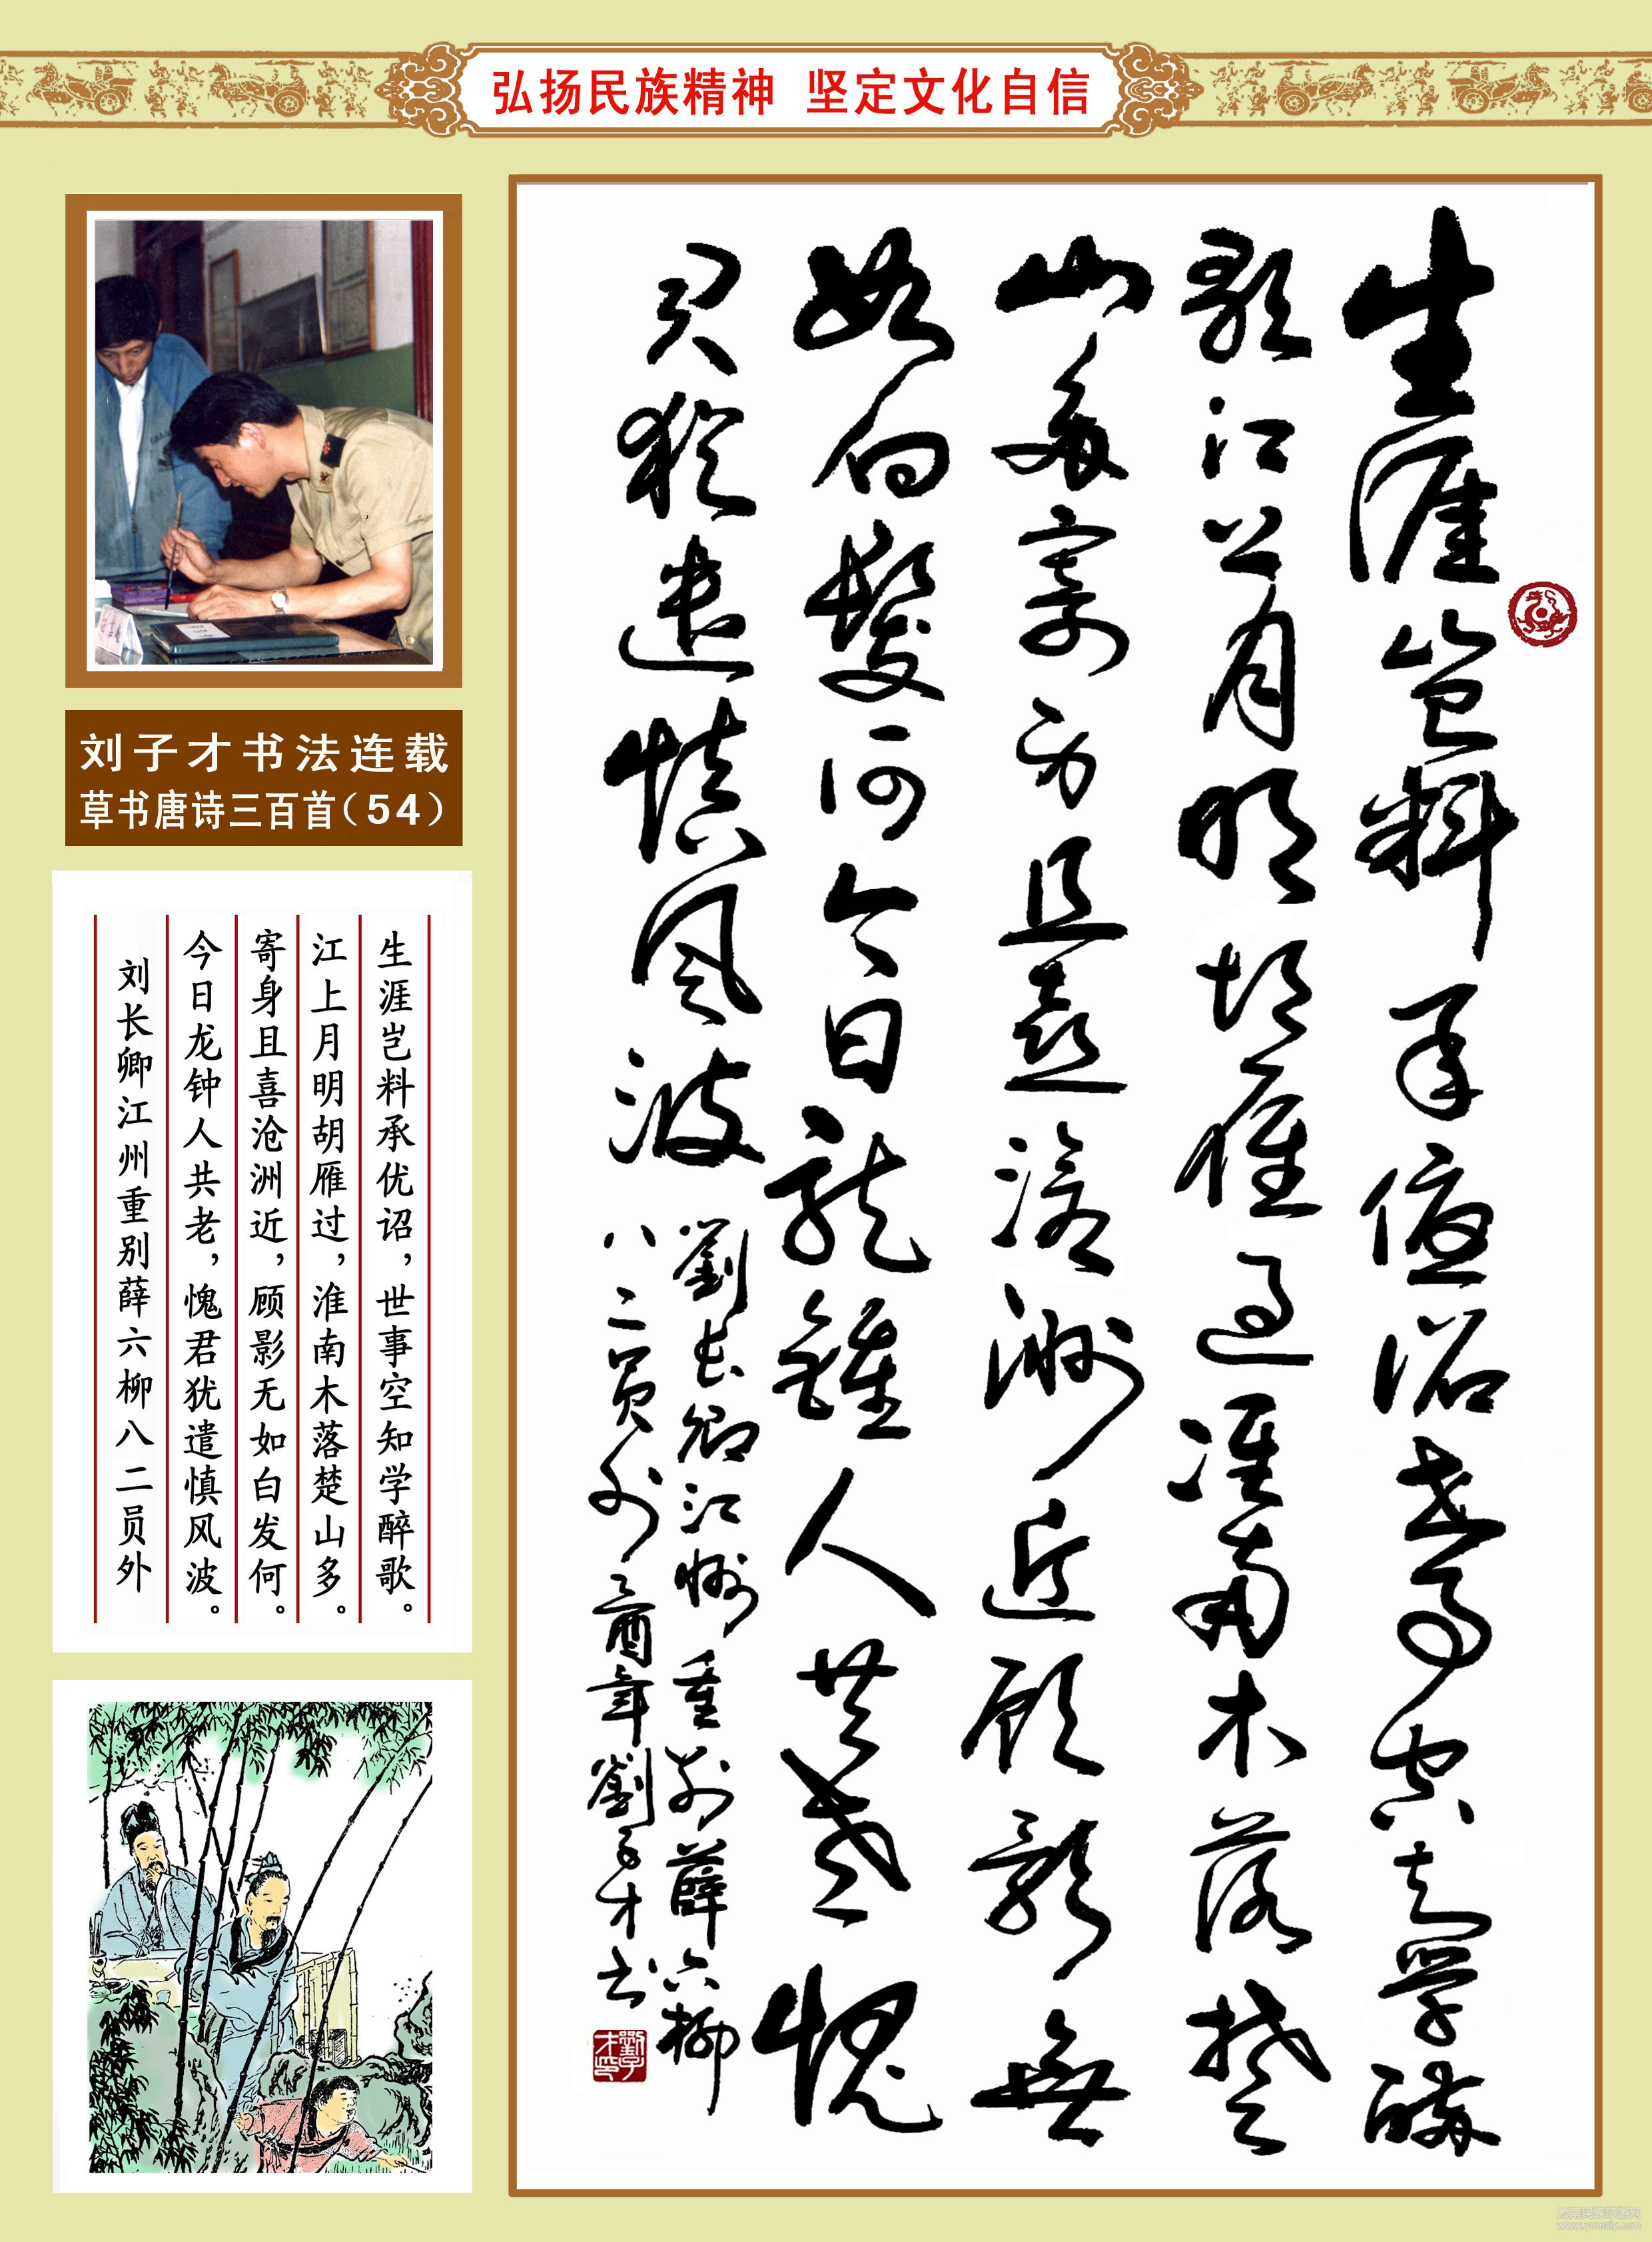 弘扬民族精神 坚定文化自信
生涯岂料承优诏世事空知学醉
歌江上月明胡雁过淮南木落楚
山多寄身且喜沧洲近顾影無
如白髮何今日龍鍾人共老愧
君犹遣慎风波
劉长卿江州重别薛六柳
八二员外 乙酉年劉子才书
劉子才印
刘子才书法连载
草书唐诗三百首(54)
生涯岂料承优诏,世事空知学醉歌。
江上月明胡雁过,淮南木落楚山多。
寄身且喜沧洲近,顾影无如白发何。
今日龙钟人共老,愧君犹遣慎风波。
刘长卿江州重别薛六柳八二员外
www.ynmzly.com